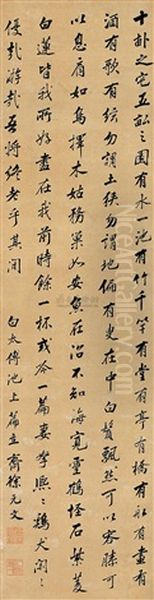 十畆之宅五畆之園有水一池有竹千竿有堂有亭有橋有船有書有
酒有歌有絃勿謂土狹勿謂地偏有叟在中白鬚飄然可以容膝可
以息肩如鳥擇木姑務巢安如魚在沼不知海寬靈鶴怪石紫菱
白蓮皆我所好盡在我前時飲一杯或吟一篇妻孥熙熙鷄犬閒閒
優哉游哉吾將終老乎其間 白太傅池上篇立齋徐元文